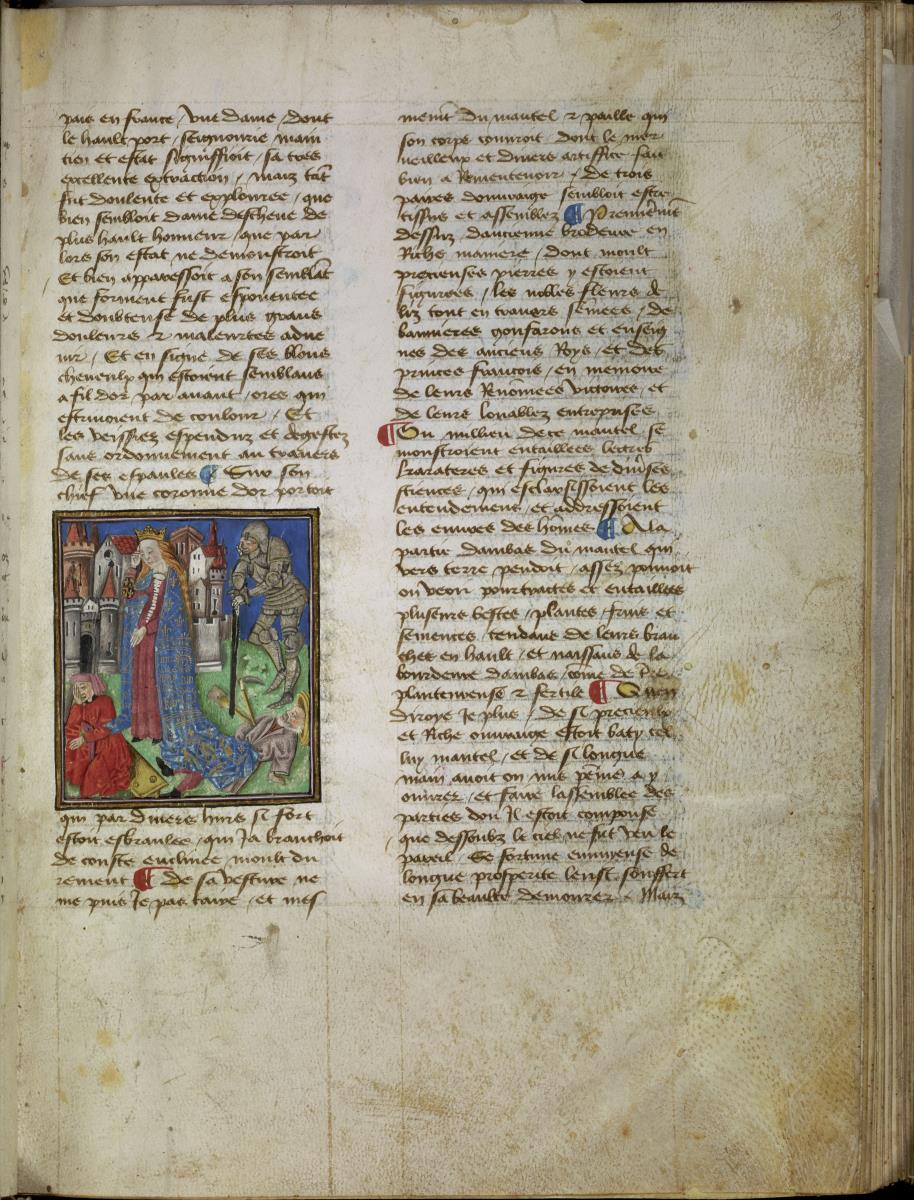 pais en france / vne dame / dont
le hault port / seignourie main
tien et estat signiffioit / sa tres
excellente extraction / maiz tāt
fut doulente et esplouree / que
bien sembloit dame descheue de
plus hault honneur / que par
lors son estat ne demonstroit
Et bien apparessoit a son semblāt
que forment fust espouentee
et doubteuse de plus grans
douleurs & maleurtes adue
nir / Et en signe de ses blons
cheueulx qui estoient semblans
a fil dor par auant / ores qui
estriuoient de coulour / Et
les veissiez espenduz et degettez
sans ordonnement au trauers
de ses espaules ¶ Sur son
chief vne coronne dor portoit
qui par diuers hurs si fort
estoit esbranlee / qui ja branchoit
de couste enclinee / moult du
rement ¶ de sa vesture ne
me puis Je pas taire / et mes
ment du mantel & paille qui
son corps couuroit dont le mer
ueilleux et diuers artiffice fait
bien a Rementeuoir / de trois
paires douuraige sembloit estre
tissus et assemblez ¶ Premierēnt
dessuz dancienne brodeure en
Riche maniere / dont moult
precieuses pierres y estoient
figurees / les nobles fleurs de
liz tout en trauers semees / de
bannieres gonfanons et enseig
nes des anciens Roys / et des
princes francois / en memoire
de leurs Renōmees victoires / et
de leurs louablez entreprises
¶ Ou millieu de ce mantel se
monstroient entaillees lectres
karacteres et figures de diuerses
sciences / qui esclarsissoient les
entendemens / et addressoient
les euures des hōmes ¶ A la
partie dambas du mantel qui
vers terre pendoit / assez pouuoit
on veoir pourtraites et entaillees
plusieurs bestes / plantes / fruis et
semences / tendans de leurs bran
ches en hault / et naissans de la
bourdeure dambas / cōme de Tre
plantureuse & fertile ¶ Quen
diroye Je plus / de si precieulx
et Riche ouuraige estoit baty cel
luy mantel / et de si longue
main auoit on mis peine a y
ouurer / et faire lassemblee des
parties don Jl estoit compouse
que dessoubz le ciel ne fut veu le
pareil / Se fortune enuyeuse de
longue prosperite leust souffert
en sa beaulte demourer / Maiz